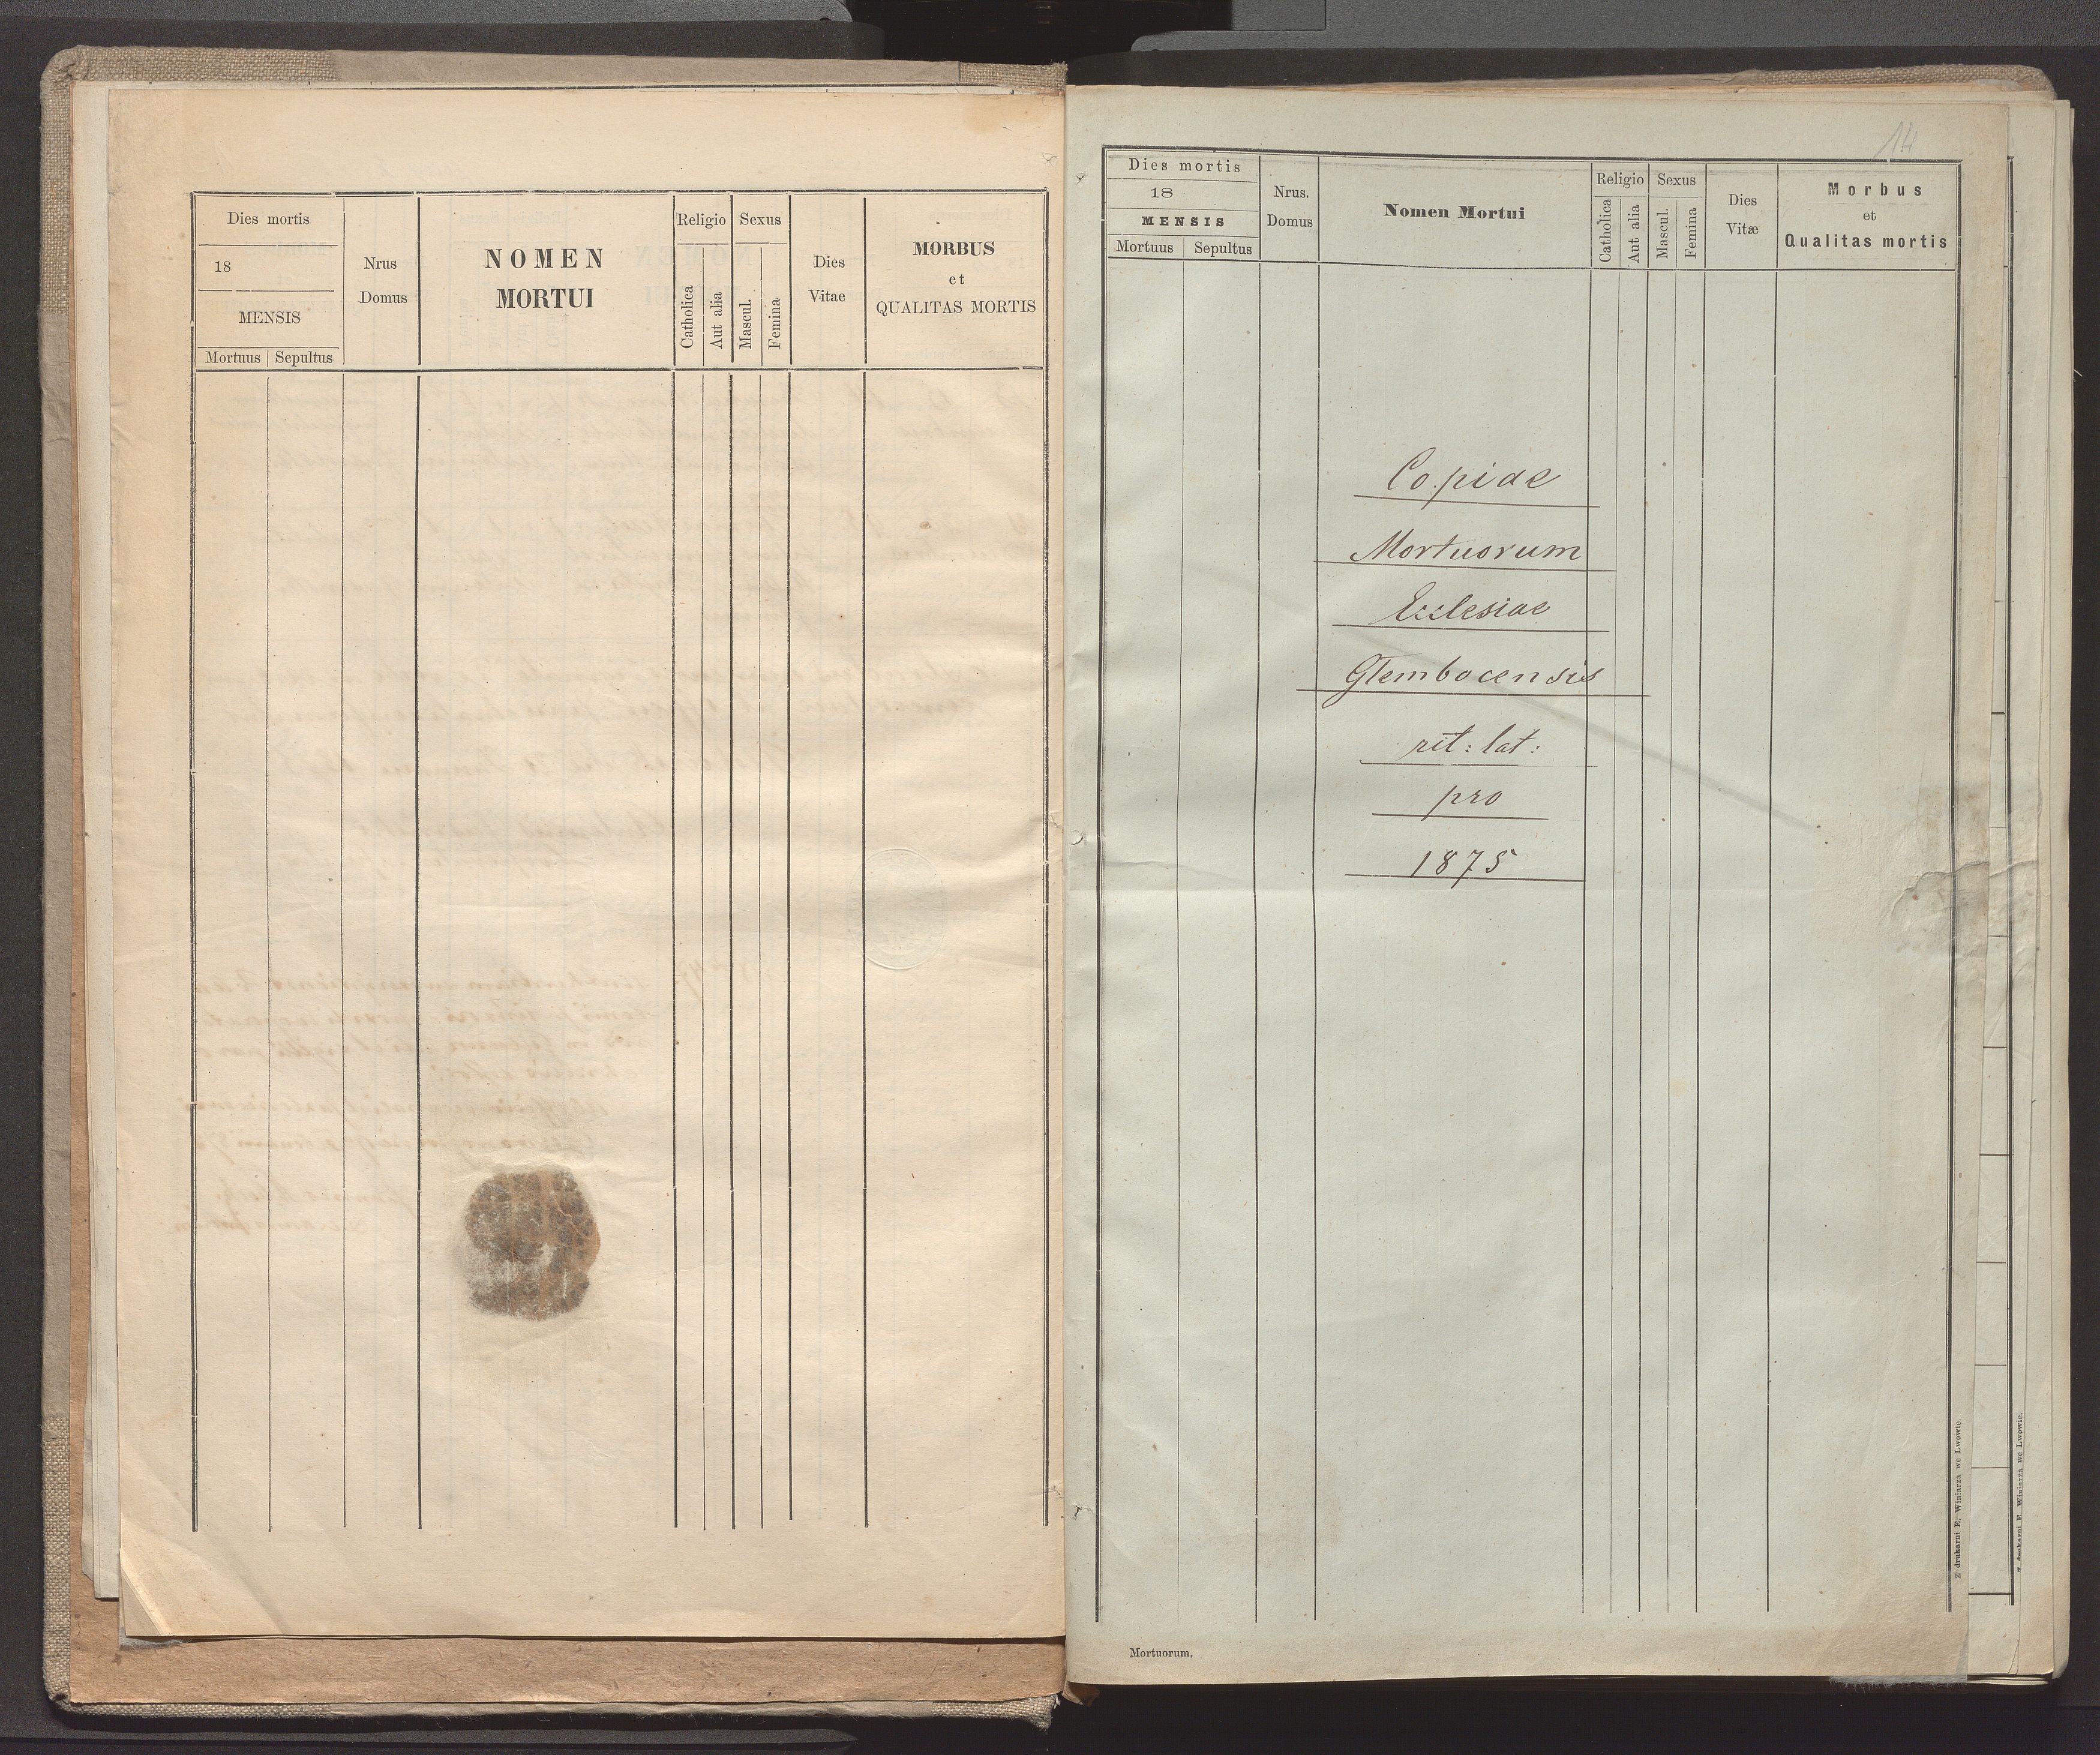 Dies mortis
18
MENSIS
Mortuus Sepultus
Nrus
Domus
NOMEN
MORTUI
Religio
Catholica
Aut alia
Sexus
Mascul.
Femina
Dies
Vitae
MORBUS
et
QUALITAS MORTIS
14
Dies mortis
18
MENSIS
Mortuus Sepultus
Nrus.
Domus
Nomen Mortui
Religio
Catholica
Aut alia
Sexus
Mascul.
Femina
Dies
Vitæ
Morbus
et
Qualitas mortis
Copiae
Mortuorum
Ecclesiae
Glembocensis
rit: lat:
pro
1875
Z drukarni E. Winiarza we Lwowie.
Z drukarni E. Winiarza we Lwowie.
Mortuorum.